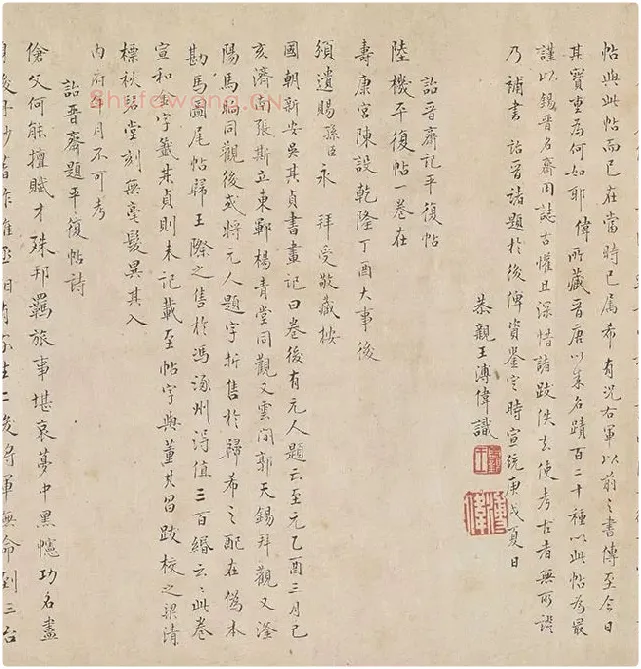 帖與此帖而已在當時已属希有況右軍以前之書傳至今日
其寶重為何如耶偉所藏晉唐以來名蹟百二十種以此帖為最
謹以錫晉名齋用誌古懽且深惜諸跋佚去使考古者無所證
乃補書詒晉諸題於後俾資鑒定時宣統庚戌夏日
恭親王溥偉識
詒晉齋記平復帖
陸機平復帖一卷在
壽康宮陳設乾隆丁酉大事後
頒遺賜孫臣永 拜受敬藏按
國朝新安吳其貞書畫記曰卷後有元人題云至元乙酉三月己
亥濟南張斯立東鄆楊青堂同觀又雲間郭天錫拜觀又滏
陽馬昫同觀後或將元人題字折售於歸希之配在偽本
勘馬圖尾帖歸王際之售於馮涿州得值三百緡云云此卷
宣和金字籤其貞則未記載至帖字與董其昌跋校之梁清
標秋碧堂刻無毫髮異其入
内府年月不可考
詒晉齋題平復帖詩
傖父何能擅賦才殊邦羈旅事堪哀夢中黑幰功名盡
Shufawang.CN